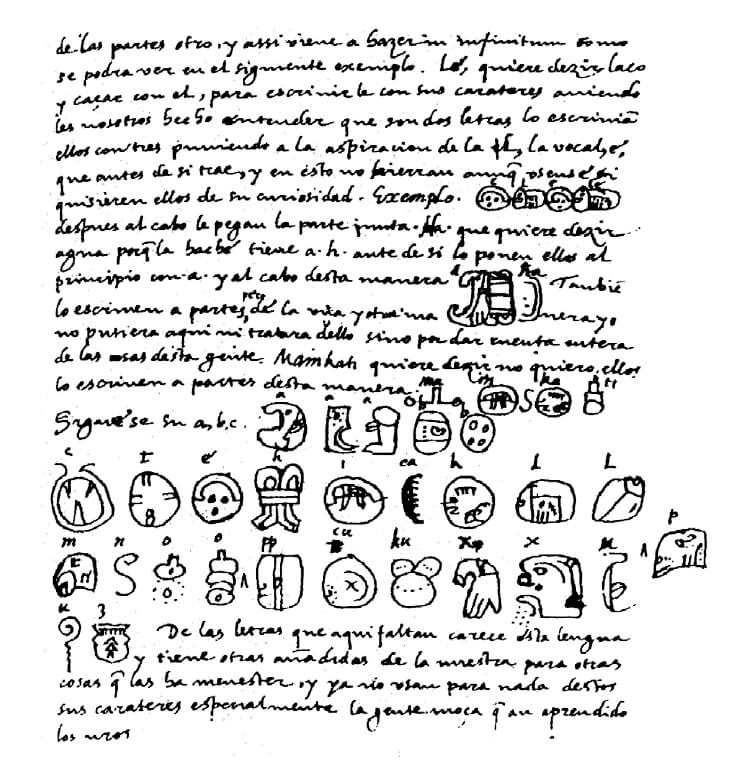 de las partes otro, y assi viene a hazer in infinitum como
se podra ver en el siguiente exemplo. Lé, quiere dezir laço
y caçar con el, para escriuirle con sus carateres auiendo
les nosotros hecho entender que son dos letras lo escriuiã
ellos con tres puniendo a la aspiracion de la l, la vocal, é,
que antes de si trae, y en esto no hierran aunq̃ usense si
quisieren ellos de su curiosidad. Exemplo. e l e lé
despues al cabo le pegan la parte junta. Ha. que quiere dezir
agua porq̃ la hache tiene a. h. ante de si lo ponen ellos al
principio con a. y al cabo desta manera a ha Tambiẽ
lo escriuen a partes, pero de la una y otra ma nera yo
no pusiera aqui ni tratara dello sino por dar cuenta entera
de las cosas desta gente. Mainkati quiere dezir no quiero, ellos
lo escriuen a partes desta manera. ma i n ka ti
Siguese su a, b, c. a a a b b
c t é h i ca k l l
m n o o pp cu ku x x u p
u z De las letras que aqui faltan carece esta lengua
y tiene otras añadidas de la nuestra para otras
cosas q̃ las ha menester, y ya no usan para nada destos
sus carateres especialmente la gente moça q̃ an aprendido
los nros